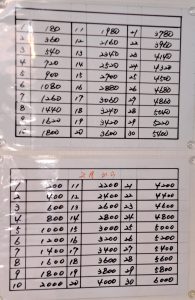 1 180 11 1980 21 3780
2 360 12 2160 22 3960
3 540 13 2340 23 4140
4 720 14 2520 24 4320
5 900 15 2700 25 4500
6 1080 16 2880 26 4680
7 1260 17 3060 27 4860
8 1440 18 3240 28 5040
9 1620 19 3420 29 5220
10 1800 20 3600 30 5400
2月から
1 200 11 2200 21 4200
2 400 12 2400 22 4400
3 600 13 2600 23 4600
4 800 14 2800 24 4800
5 1000 15 3000 25 5000
6 1200 16 3200 26 5200
7 1400 17 3400 27 5400
8 1600 18 3600 28 5600
9 1800 19 3800 29 5800
10 2000 20 4000 30 6000